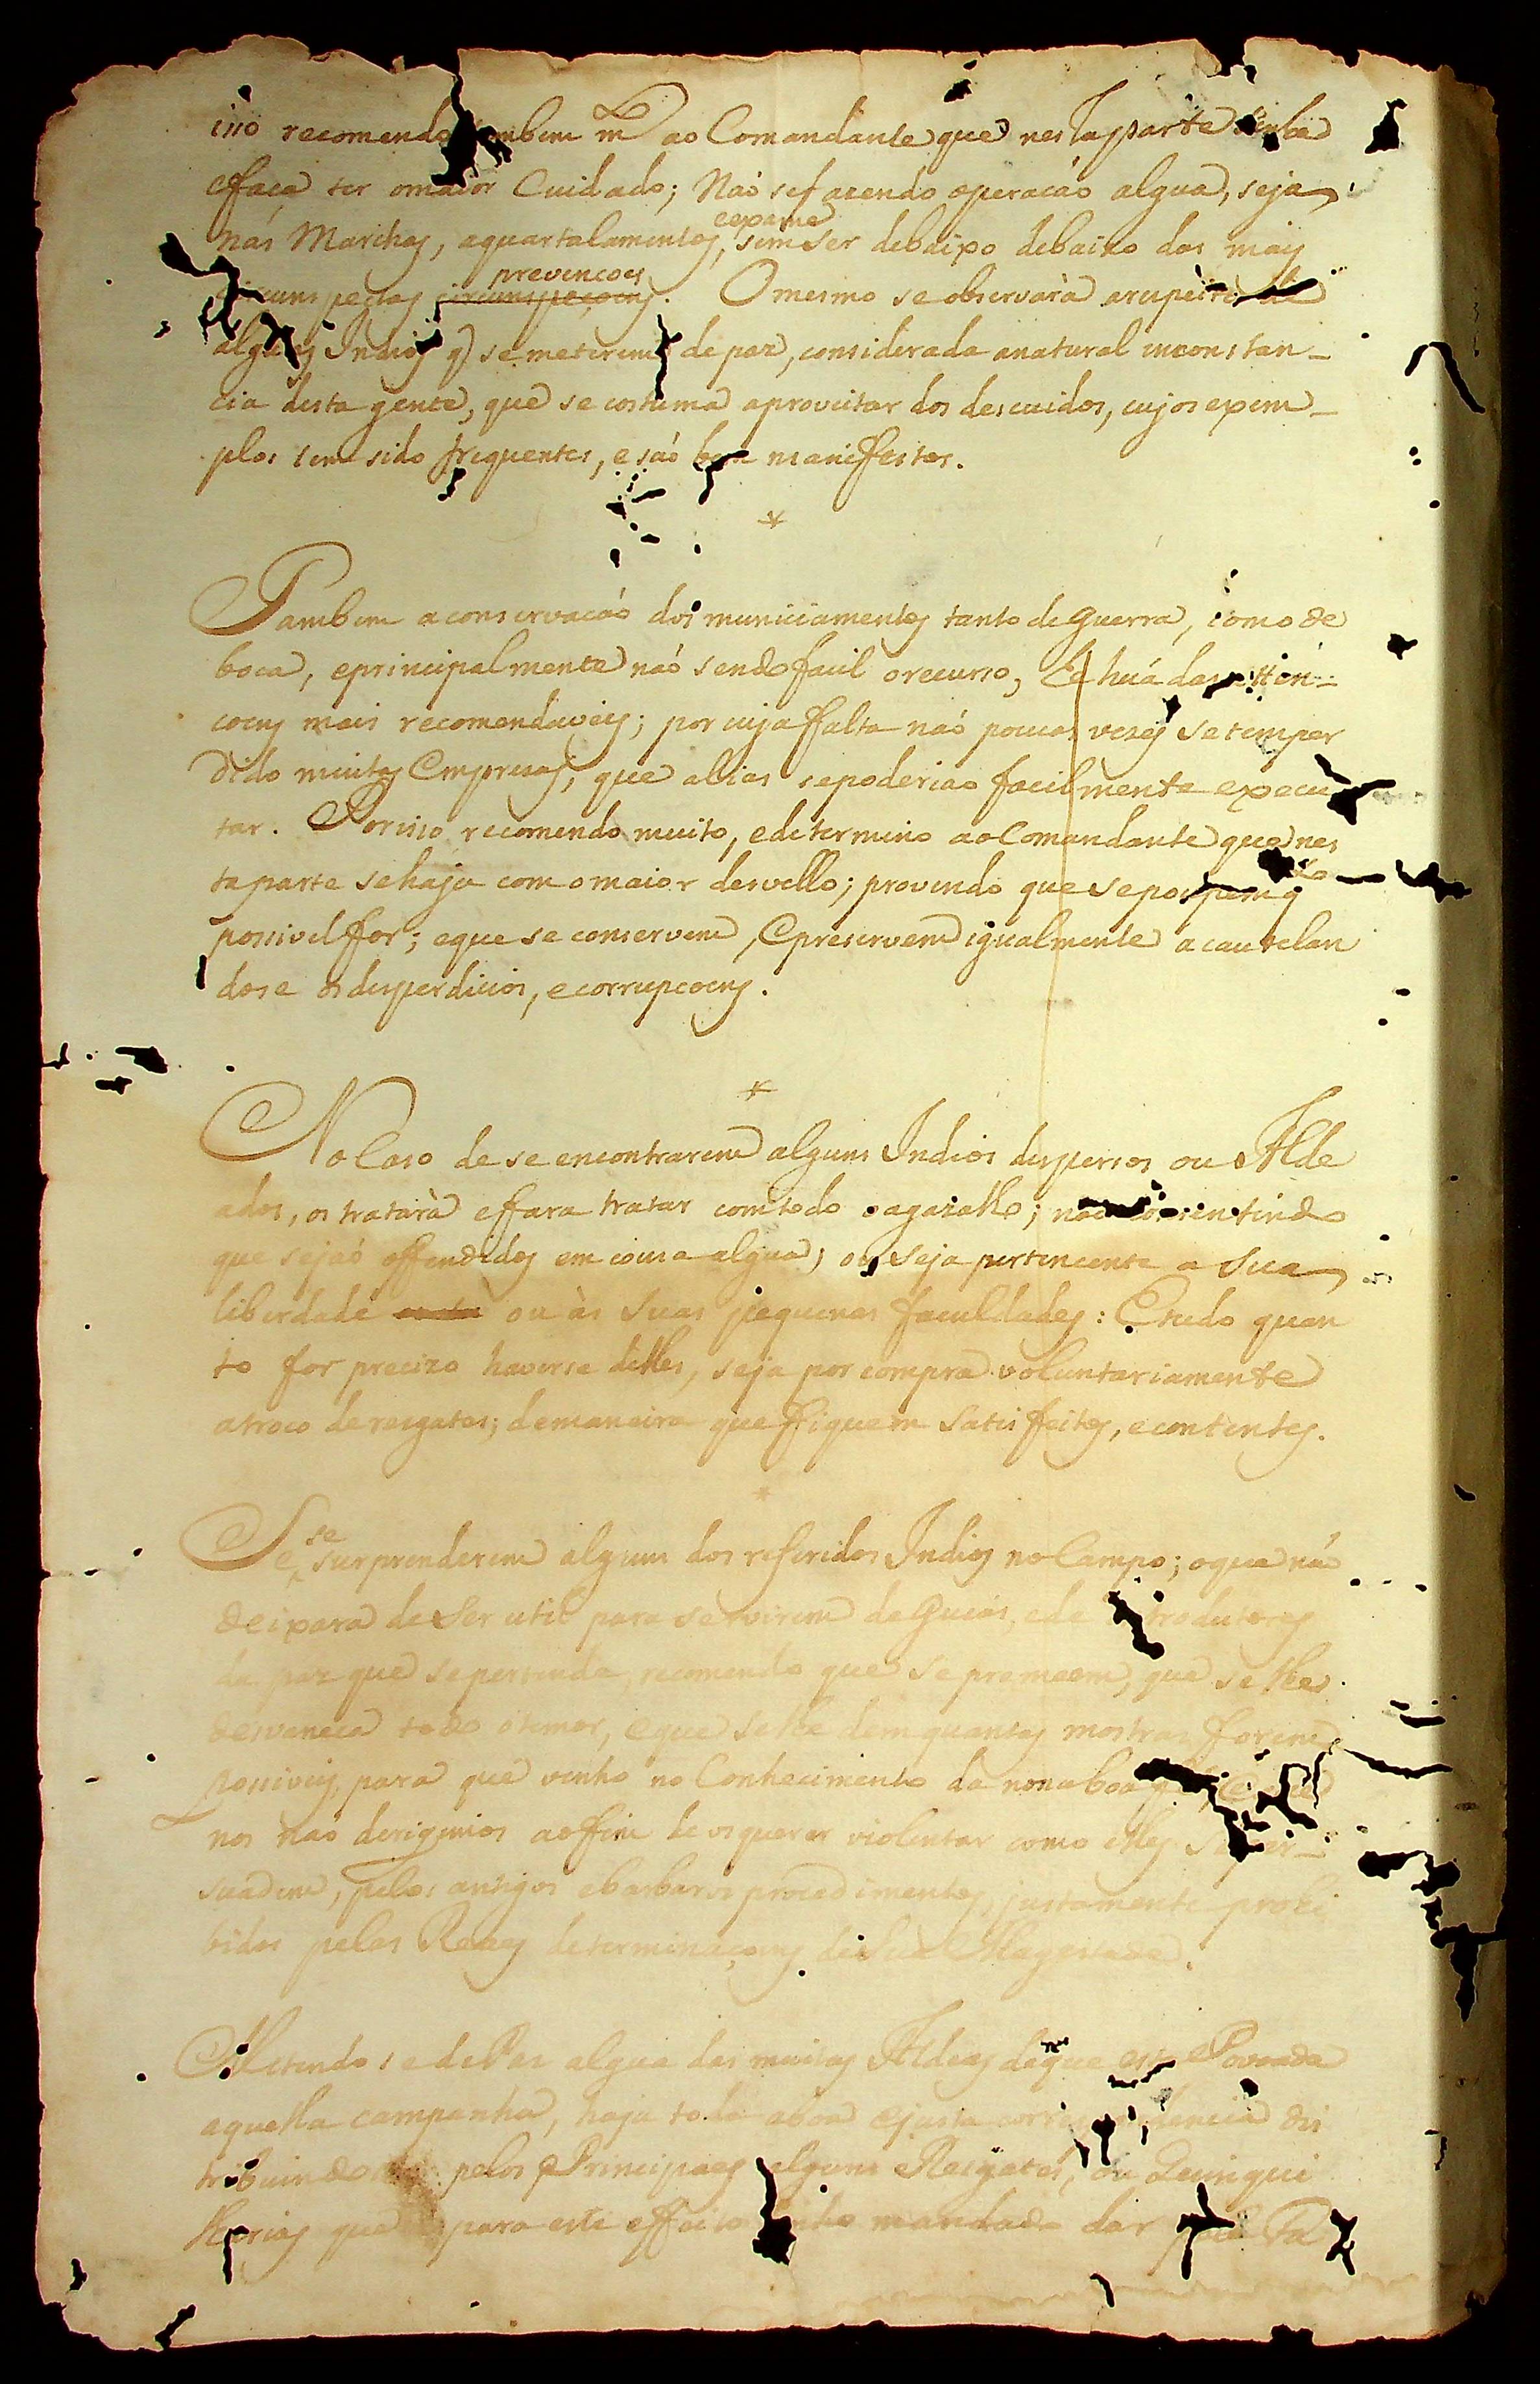 isso recomendo tambem m.to ao Comandante que nesta parte tenha
e faça ter o maior Cuidado; Naó se fazendo operaçáo algua, seja
nas Marchas, aquartalamentos, e exame sem ser debaixo debaixo das mais
circunspectas circunspeçoens prevencoes. O mesmo se observarà a respeito de
alguns Indios q se meterem de paz, considerada a natural inconstan_
cia desta gente, que se costuma aproveitar dos descuidos, cujos exem_
plos tem sido frequentes, e saó bem manifestos.
*
Tambem a conservacáo dos municiamentos tanto de guerra, como de
boca, e principalmente naó sendo facil o recurso, É huá das atten_
coens mais recomendaveis; por cuja falta naó poucas vezes se tem per
dido muitas Empresas, que alias se poderiao facilmente execu
tar. Por isso recomendo muito, e determino ao Comandante que nes
ta parte se haja com o maior desvello; provendo que se poupem q.to
possivel for; e que se conservem, e preservem igualmente acautelan
dose os desperdicios, e corrupcoens.
*
No Caso de se encontrarem alguns Indios dispersos ou Alde
ados, os tratarà e fara tratar com todo o agazalho; não consentindo
que sejaó offendidos em cousa algua; ou seja pertencente a Sua
liberdade ou às Suas pequenas faculdades: E tudo quan
to for precizo haverse delles, seja por compra voluntariamente
a troco de resgates; de maneira que fiquem Satisfeitos, e contentes.
*
Se se surprenderem alguns dos referidos Indios no Campo; o que naó
deixara de Ser util para servirem de Guias, e de introdutores
da paz que se pertende, recomendo que se premeem, que se lhes
desvaneca todo o temor, e que se lhe dem quantas mostras forem
possiveis, para que venhó no Conhecimento da nossa boa fé, e que
nos naó derigimos ao fim de os querer violentar como elles se per_
suadem, pelos antigos e barbaros procedimentos, justamente prohi
bidos pelas Reaes determinaçoens de Sua Magestade.
Metendose de Paz algua das muitas Aldeas de que està Povoada
aquella campanha, haja toda a boa e justa correspondencia dis
tribuindo pelos Principaes alguns Resgates, ou Quinqui
lharias que para este effeito tenho mandado dar